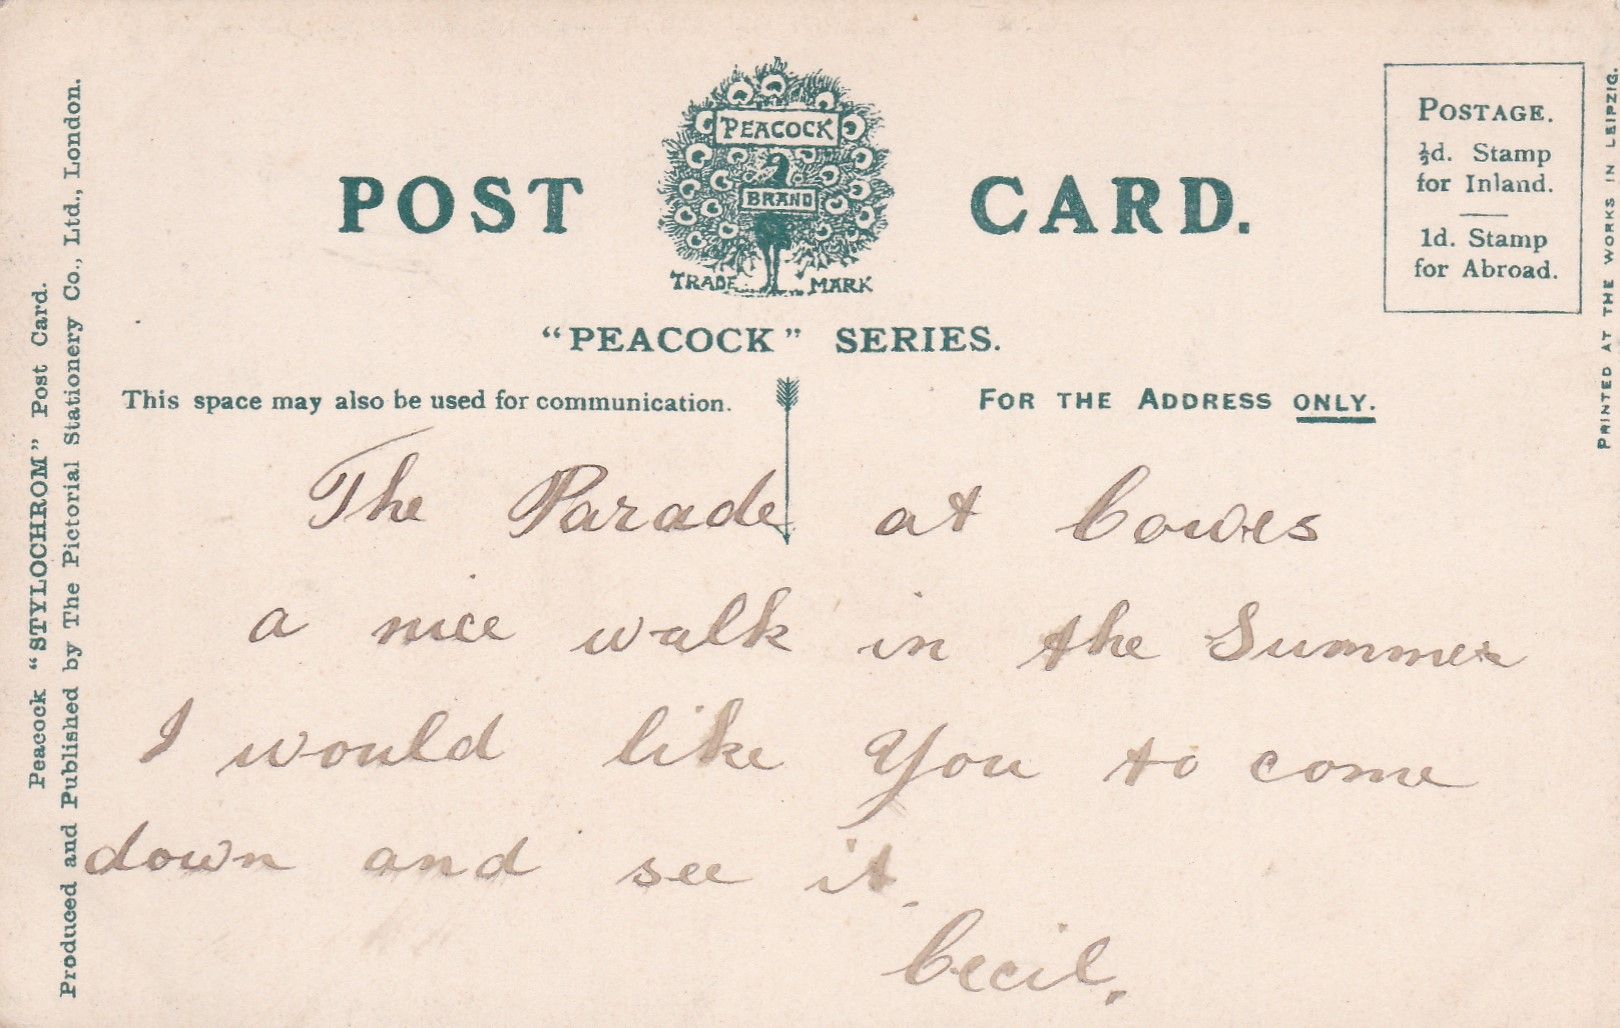 POST CARD.
PEACOCK
BRAND
TRADE MARK
"PEACOCK" SERIES.
This space may also be used for communication.
FOR THE ADDRESS ONLY.
POSTAGE.
½d. Stamp
for Inland.
1d. Stamp
for Abroad.
PRINTED AT THE WORKS IN LEIPZIG.
Peacock "STYLOCHROM" Post Card.
Produced and Published by The Pictorial Stationery Co., Ltd., London.
The Parade at Cowes
a nice walk in the Summer
I would like You to come
down and see it.
Cecil.